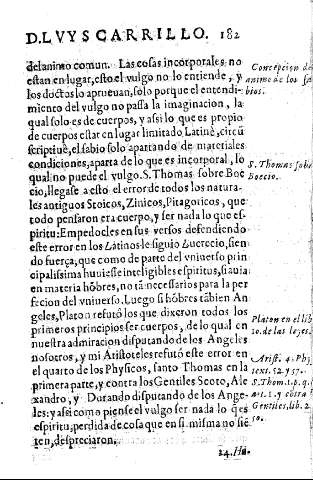 D. LVYS CARRILLO. 182
del animo comun. Las cosas incorporales no
estan en lugar, esto el vulgo no lo entiende, y
los doctos lo aprueuan, solo porque el entendi-
miento del vulgo no passa la imaginacion, la
qual solo es de cuerpos, y assi lo que es propio
de cuerpos estar en lugar limitado, Latinè, circũ
scriptiuè, el sabio solo apartando de materiales
condiciones, aparta de lo que es incorporal, lo
qual no puede el vulgo. S. Thomas sobre Boe
cio, llegase a esto el error de todos los natura-
les antiguos Stoicos, Zinicos, Pitagoricos, que
todo pensaron era cuerpo, y ser nada lo que es-
piritu: Empedocles en sus versos defendiendo
este error en los Latinos le siguio Lucrecio, sien
do fuerça, que como de parte del vniuerso prin
cipalissima huuiesse inteligibles espiritus, si auia
en materia hõbres, no tã necessarios para la per
feccion del vniuerso. Luego si hõbres tãbien An
geles, Platon refutò los que dixeron todos los
primeros principios ser cuerpos, de lo qual en
nuestra admiracion disputando de los Angeles
nosotros, y mi Aristoteles refutò este error en
el quarto de los Physicos, santo Thomas en la
primera parte, y contra los Gentiles Scoto, Ale
xandro, y Durando disputando de los Ange-
les: y assi como piense el vulgo ser nada lo q̃ es
espiritu, perdida de cosa que en si misma no siẽ
ten, despreciaron.
24. Ha-
Concepcion de
animo de los sa
bios.
S. Thomas sobre
Boecio.
Platon en el lib
10. de las leyes.
Arist. 4. Phy
text. 52. y 57.
S. Thom. 1. p. q.
a. 1. y contra
Gentiles, lib. 2
50.